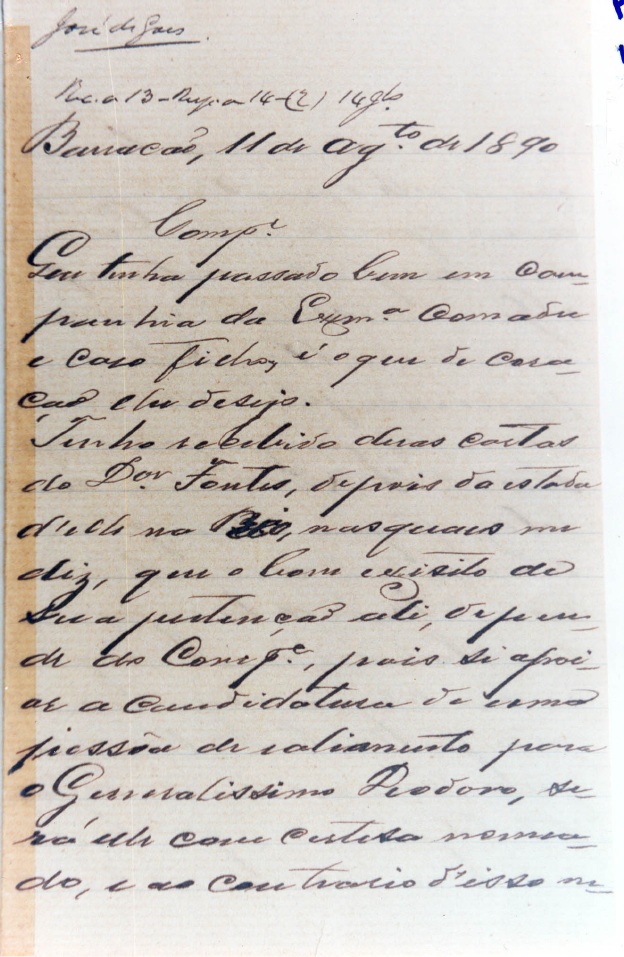 José de Goes
Rec. a 13 - Resp. a 14 - (2) 14 9bº
Barracão, 11 de Ag.to de 1890
Comp.e
Que tenha passado bem em com-
panhia da Exm.a Comadre
e caro filho, é o que de cora-
ção lhe desejo.
Tenho recebido duas cartas
do Dor. Fontes, depois da estada
d'elle no Rio, nas quaes me
diz, que o bom exisito de
sua pertenção ali, depen-
de do Comp.e, pois si apoi-
ar a candidatura de uma
pessôa de valiamento para
o Generalissimo Deodoro, se-
rá elle com certesa nomea-
do, e ao contrario d'isso n-